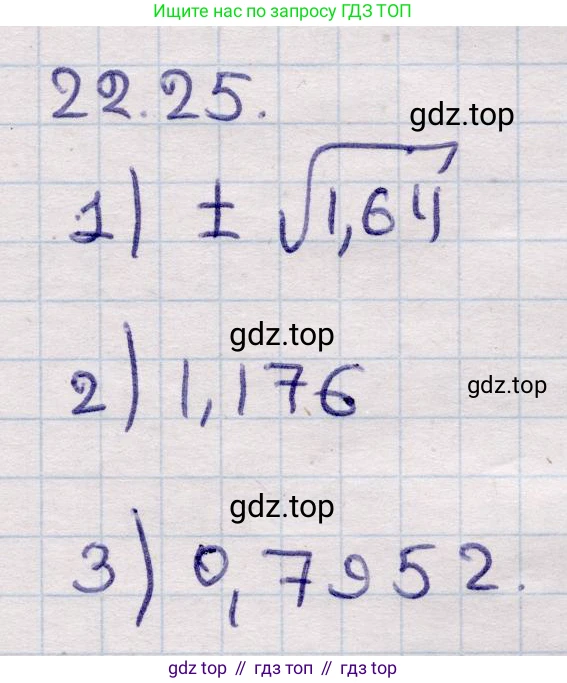 Ищите нас по запросу ГДЗ ТОП
22.25.
gdz.top
1) ± √1,64
gdz.top
2) 1,176
gdz.top
gdz.top
3) 0,7952.
gdz top // гдз топ // gdz top